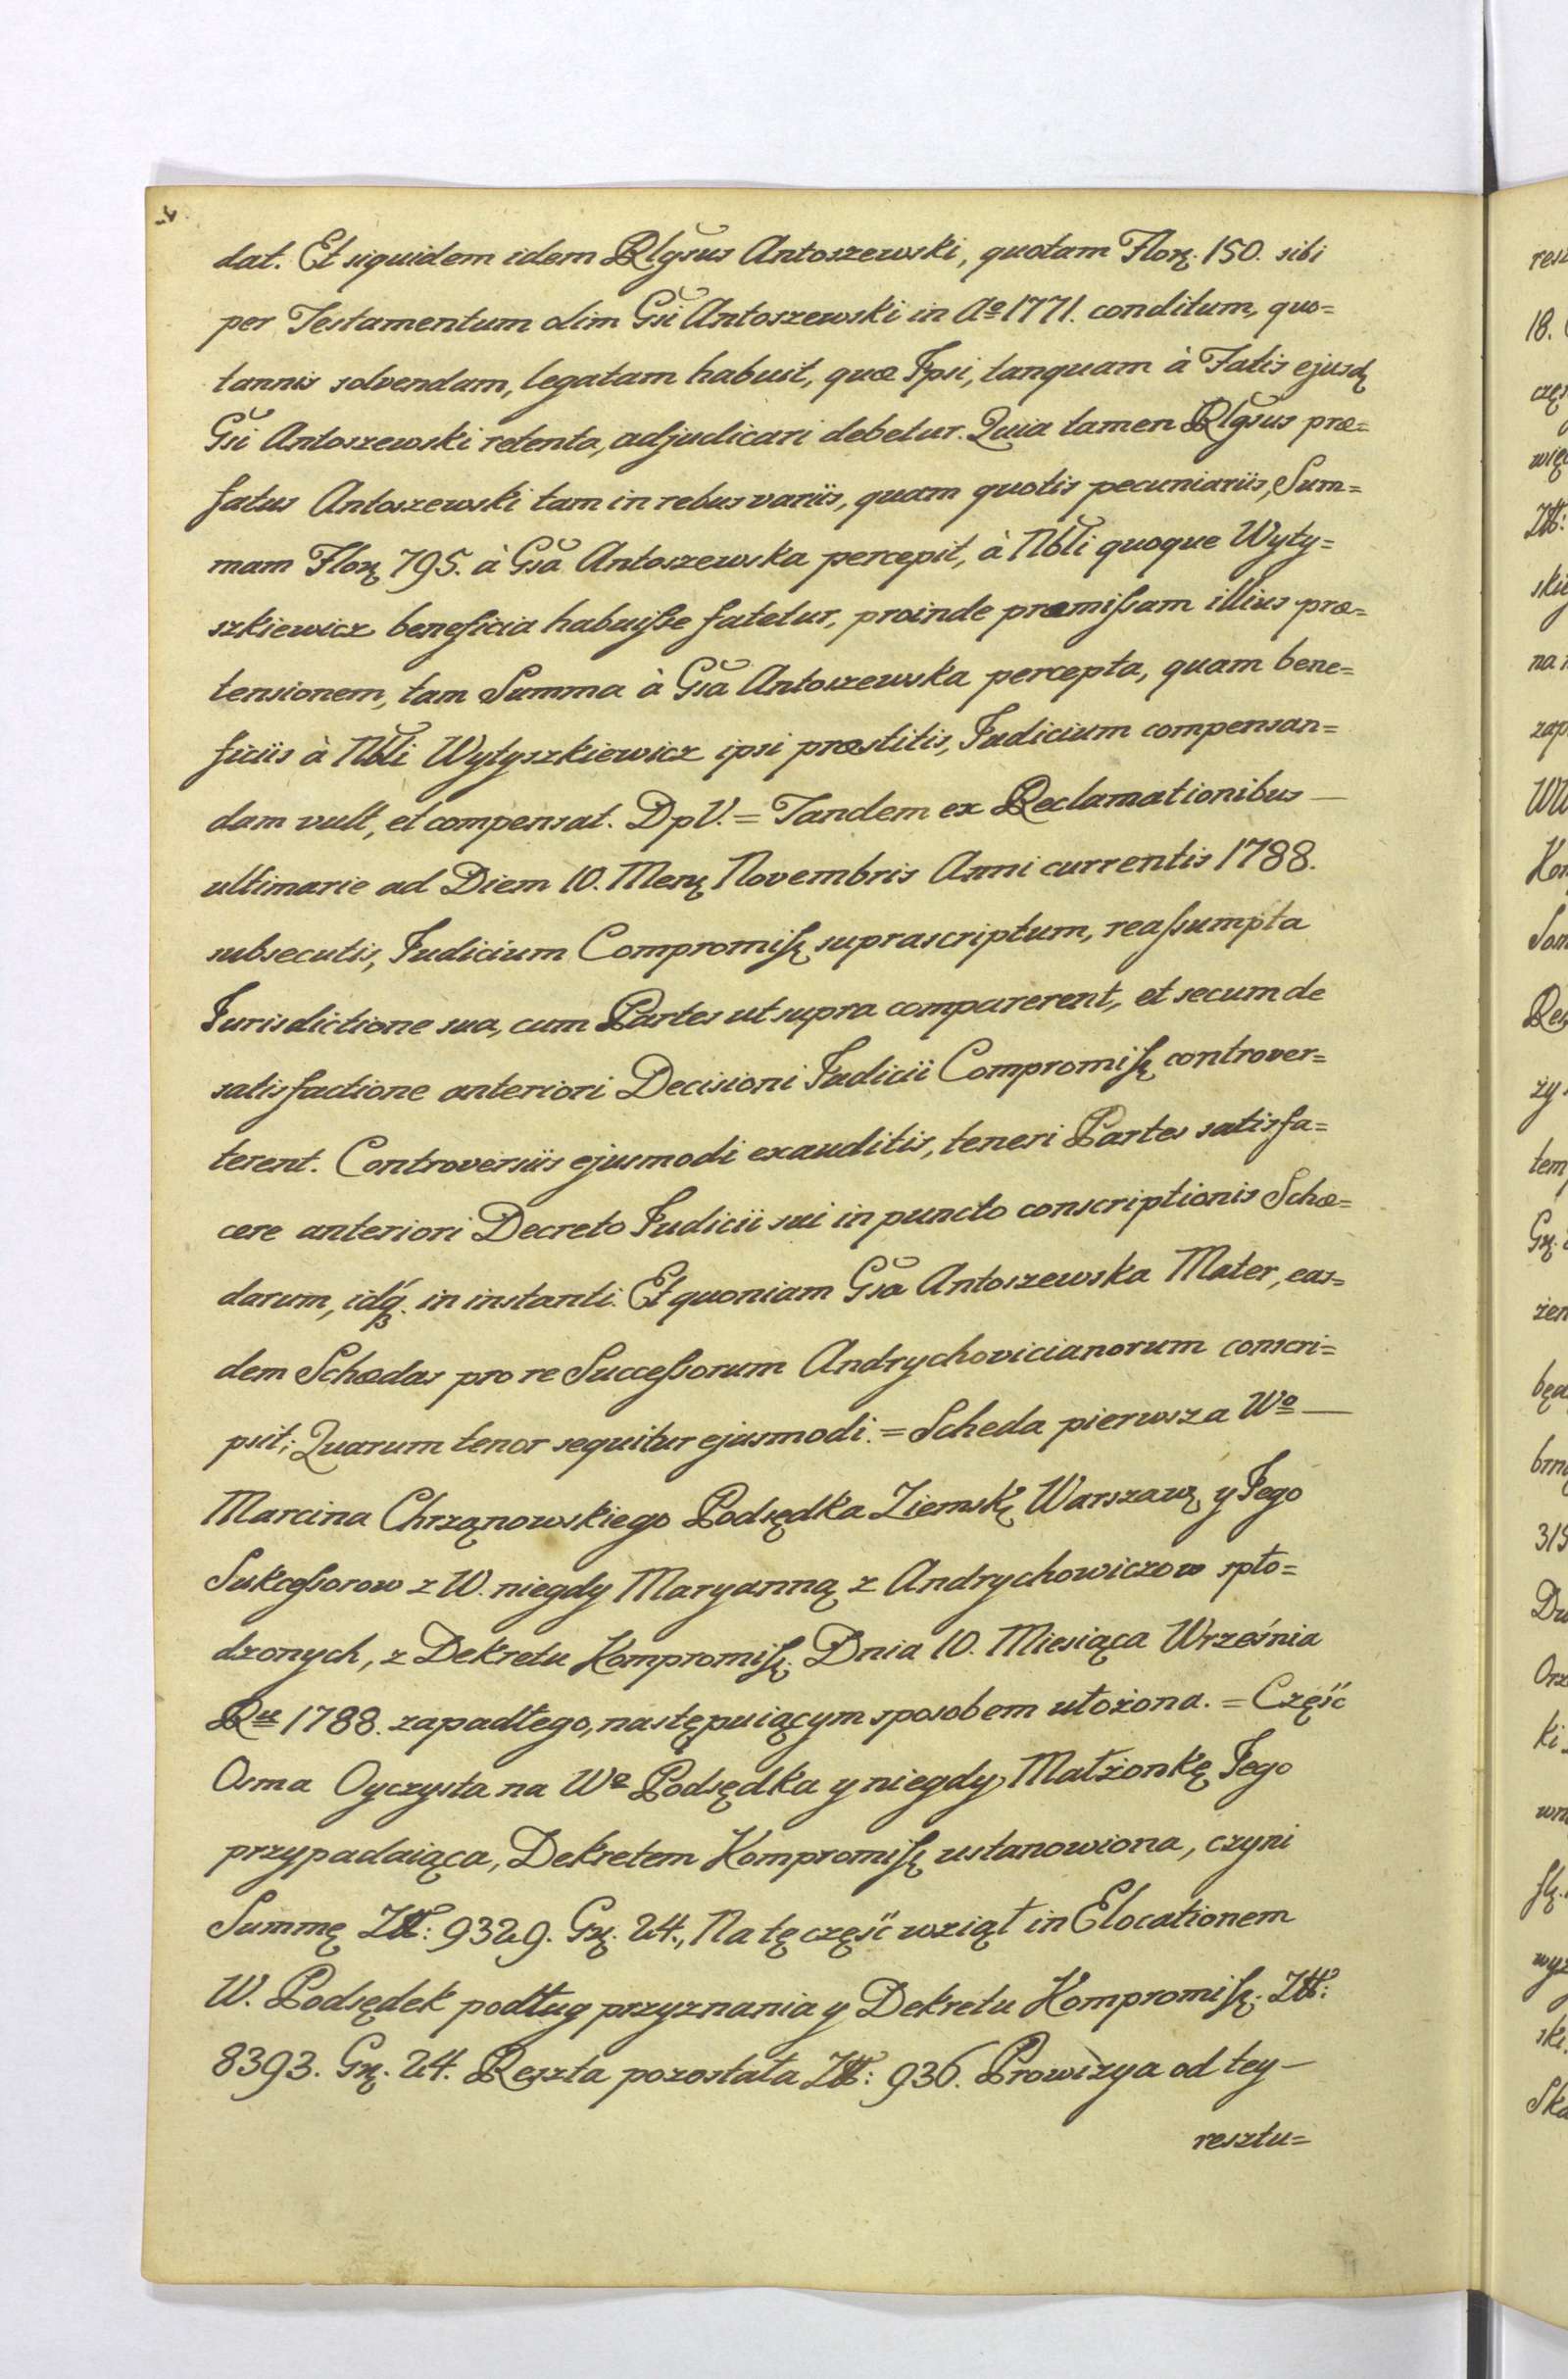 dat. Et siquidem idem Rlgsus Antoszewski, quotam Florꝝ. 150. sibi
per Testamentum olim Gsi Antoszewski in Aº 1771. conditum, quo=
tannis solvendam, legatam habuit, quæ Ipsi, tanquam à Fatis ejusdꝫ
Gsi Antoszewski retenta, adjudicari debetur. Quia tamen Rlgsus præ=
fatus Antoszewski tam in rebus variis, quam quotis pecuniariis, Sum=
mam Florꝝ 795. à Gsa Antoszewska percepit, à Nbli quoque Wyty=
szkiewicz beneficia habuiſse fatetur, proinde præmiſsam illius præ=
tensionem, tam Summa à Gsa Antoszewska percepta, quam bene=
ficiis à Nbli Wytyszkiewicz ipsi præstitis, Judicium compensan=
dam vult, et compensat. DpV. = Tandem ex Reclamationibus —
ultimarie ad Diem 10. Mensꝫ Novembris Anni currentis 1788.
subsecutis, Judicium Compromiſsꝫ suprascriptum, reaſsumpta
Jurisdictione sua, cum Partes ut supra comparerent, et secum de
satisfactione anteriori Decisioni Judicii Compromiſsꝫ controver=
terent. Controversiis ejusmodi exauditis, teneri Partes satisfa=
cere anteriori Decreto Judicii sui in puncto conscriptionis Schæ=
darum, idqꝫ. in instanti. Et quoniam Gsa Antoszewska Mater, eas=
dem Schædas pro re Succeſsorum Andrychovicianorum conscri=
psit; Quarum tenor sequitur ejusmodi. = Scheda pierwsza Wº —
Marcina Chrzanowskiego Podsędka Ziemskꝫ Warszawꝫ y Jego
Sukceſsorow z W. niegdy Maryanną z Andrychowiczow spło=
dzonych, z Dekretu Kompromiſsꝫ. Dnia 10. Miesiąca Września
Ru 1788. zapadłego, następuiącym sposobem ułożona. = Część
Osma Oyczysta na Wº Podsędka y niegdy Małżonkę Jego
przypadaiąca, Dekretem Kompromiſsꝫ ustanowiona, czyni
Summę Złł: 9329. Grꝫ. 24., Na tę część wziął in Elocationem
W. Podsędek podług przyznania y Dekretu Kompromiſsꝫ. Złł:
8393. Grꝫ. 24. Reszta pozostała Złł: 936. Prowizya od tey —
resztu=